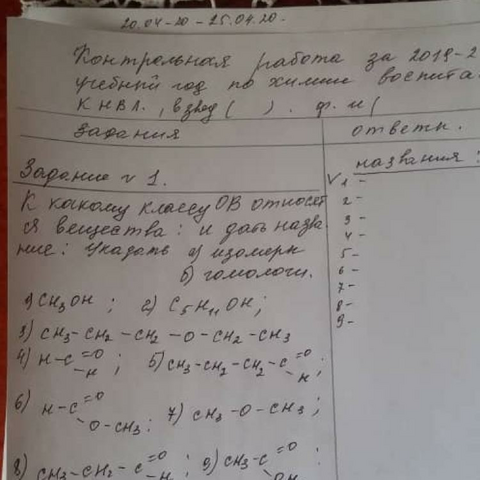 20.04-20 - 25.04.20.
Контрольная работа за 2019-2
учебный год по химии воспита
КНВЛ., взвод ( ) . ф. и (
Задания
ответы.
Задание № 1.
К какому классу ОВ относет
ся вещества: и дать назва
ние: Указать а) изомеры
б) гомологи.
1) CH3OH ; 2) C5H11OH;
3) CH3-CH2-CH2-O-CH2-CH3
4) H-C=O
-H ; 5) CH3-CH2-CH2-C=O
-H ;
6) H-C=O
O-CH3: 7) CH3-O-CH3;
8) CH3-CH2-C=O
-H ; 9) CH3-C=O
OH :
названия:
V 1 -
2 -
3 -
4 -
5 -
6 -
7 -
8 -
9 -